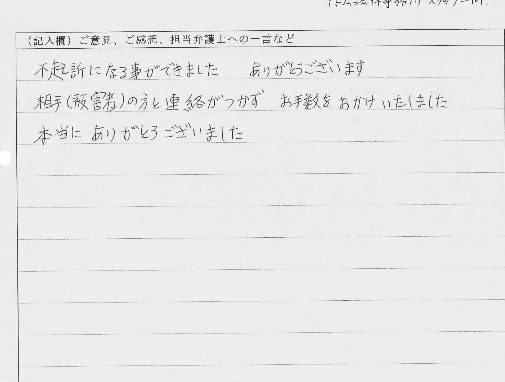 (記入欄) ご意見、ご感想、担当弁護士への一言など
不起訴になる事ができました　ありがとうございます
相手(被害者)の方と連絡がつかず　お手数をおかけいたしました
本当に ありがとうございました